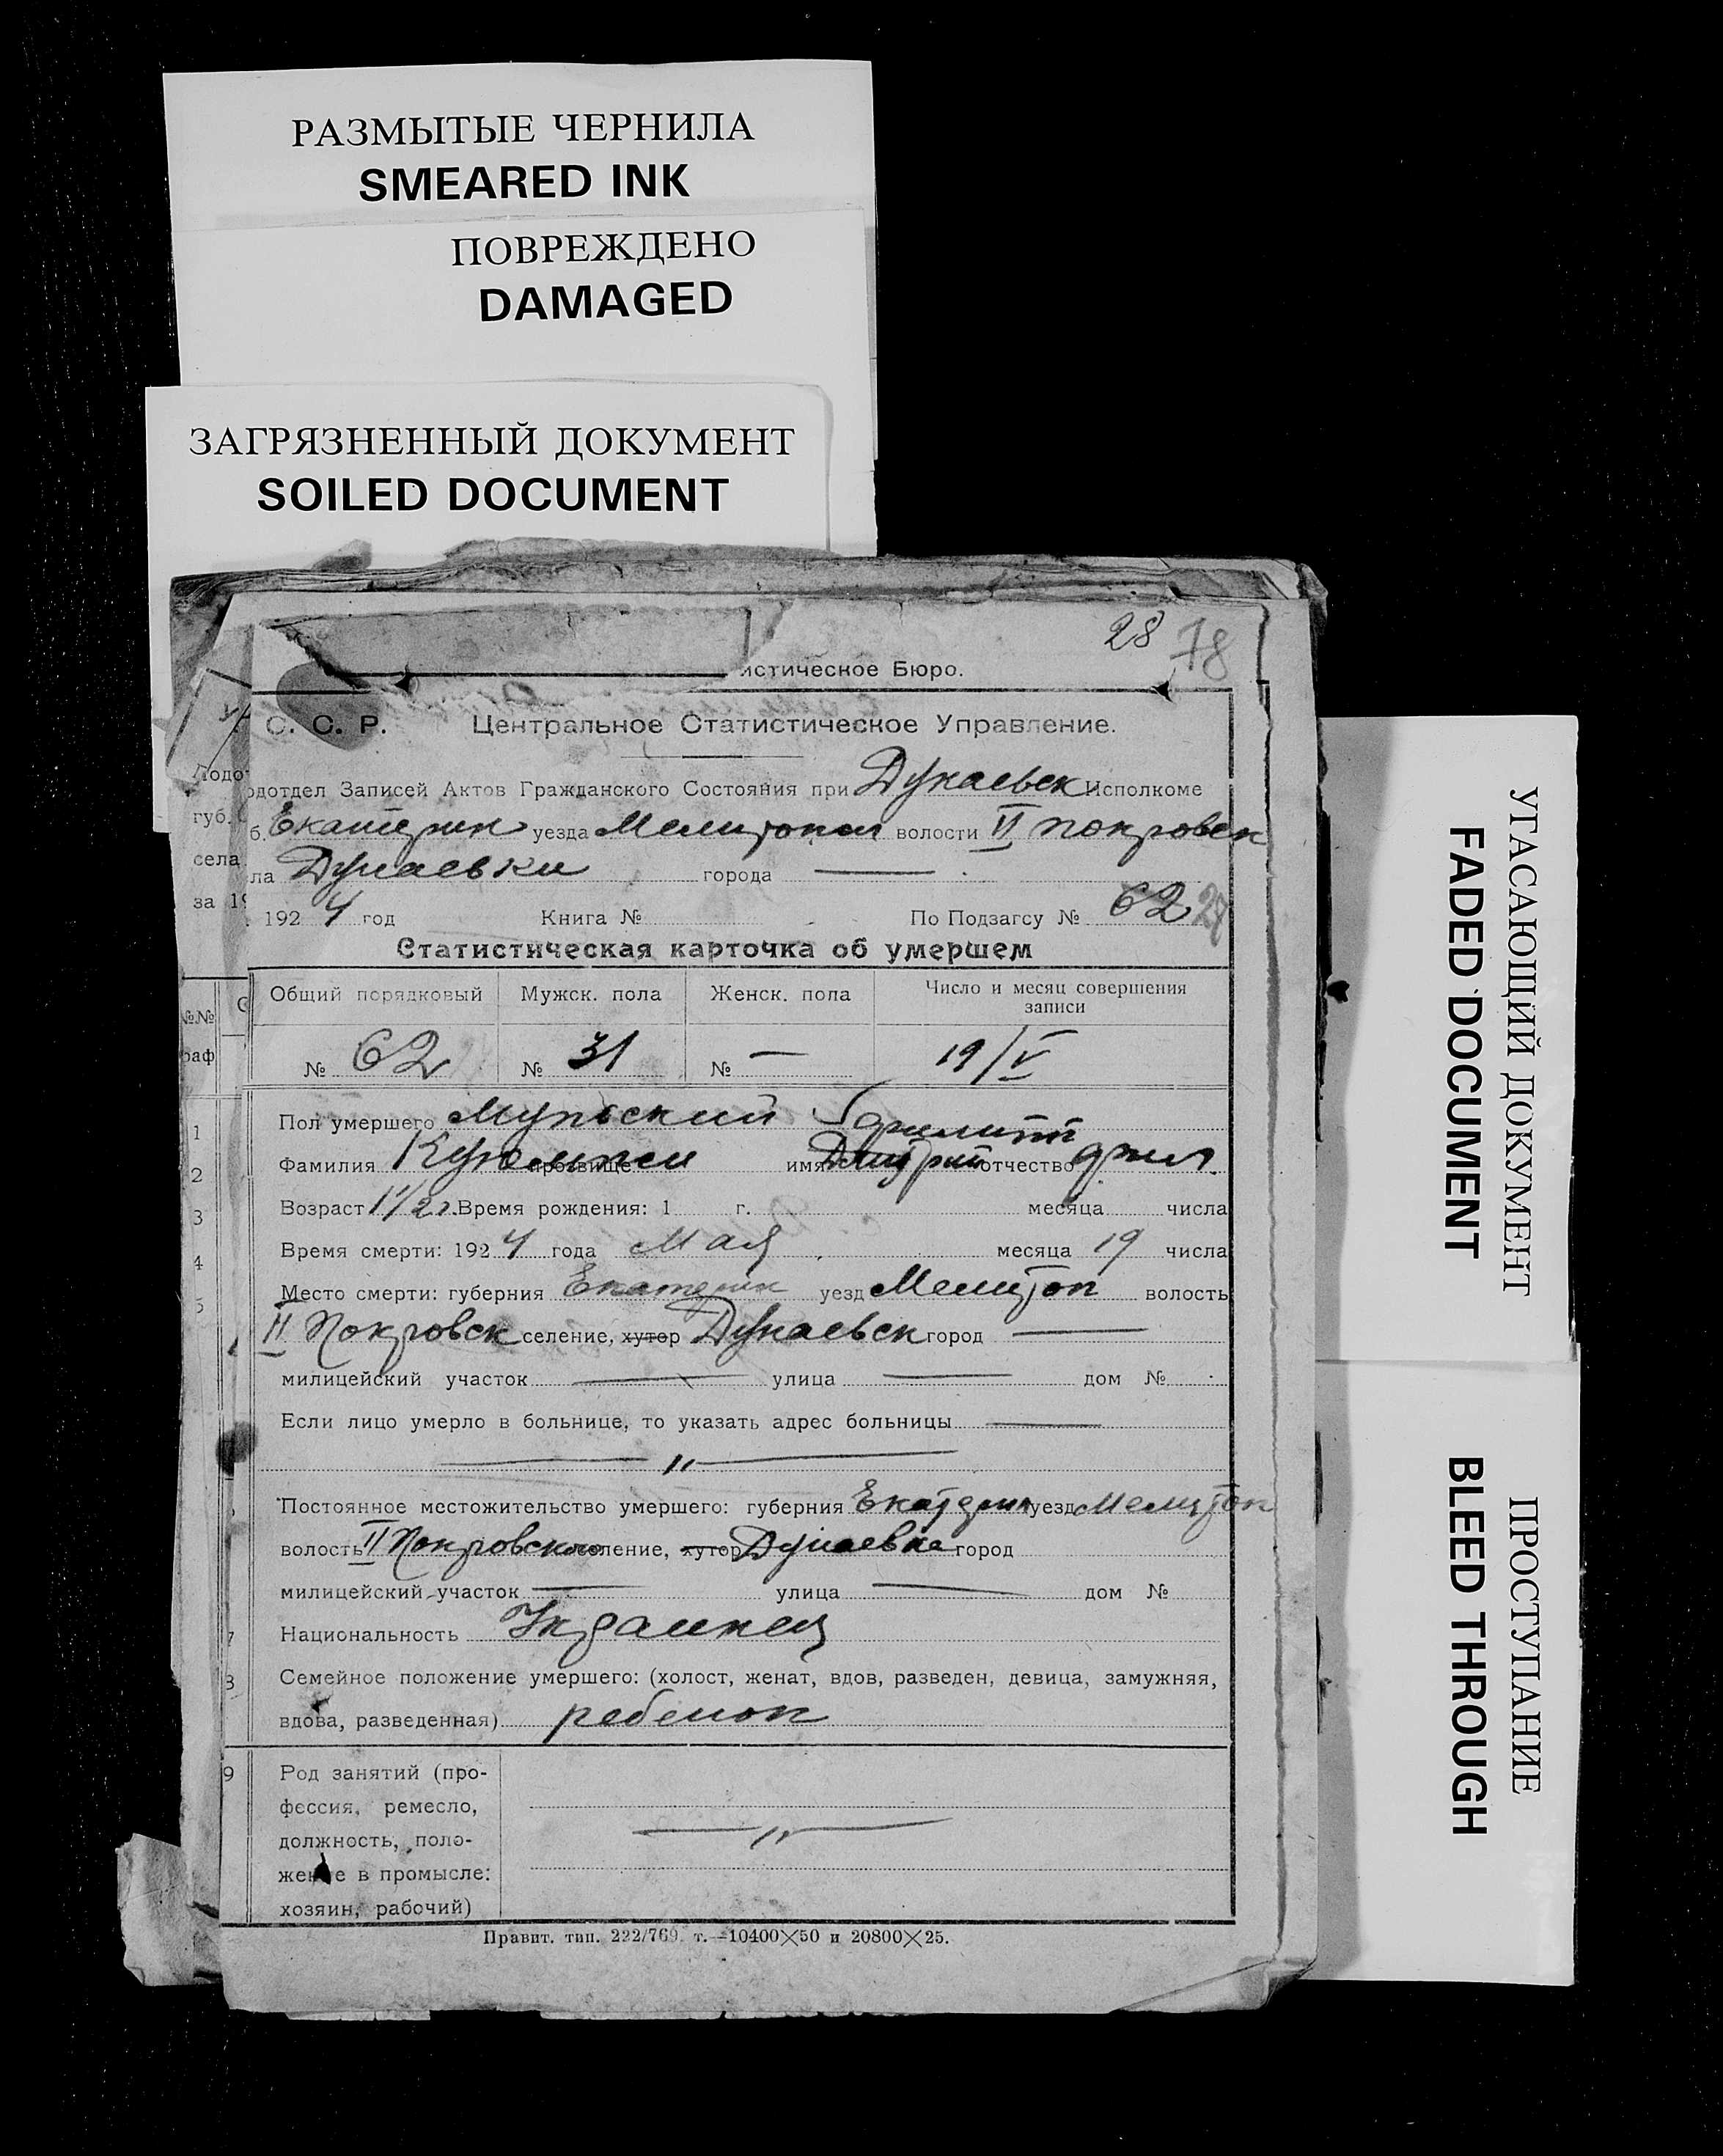 РАЗМЫТЫЕ ЧЕРНИЛА
SMEARED INK
ПОВРЕЖДЕНО
DAMAGED
ЗАГРЯЗНЕННЫЙ ДОКУМЕНТ
SOILED DOCUMENT
28 78
истическое Бюро.
С. С. Р. Центральное Статистическое Управление.
одотдел Записей Актов Гражданского Состояния при Дунаевск Исполкоме
б. Екатерин уезда Мелитопол волости II Покровск
ла Дунаевки города —
192 4 год Книга № По Подзагсу № 62 27
Статистическая карточка об умершем
Общий порядковый Мужск. пола Женск. пола Число и месяц совершения записи
№ 62 № 31 № — 19/V
1 Пол умершего Мужеский
2 Фамилия прозвище имя Дмитрий отчество
3 Возраст 1 1/2 г. Время рождения: 1 г. месяца числа
4 Время смерти: 192 4 года Мая месяца 19 числа
5 Место смерти: губерния Екатерин уезд Мелитоп волость
II Покровск селение, хутор Дунаевск город —
милицейский участок — улица — дом №
Если лицо умерло в больнице, то указать адрес больницы —
— " —
Постоянное местожительство умершего: губерния Екатерин уезд Мелитоп
волость II Покровского селение, хутор Дунаевка город
милицейский участок — улица — дом №
7 Национальность Украинец
8 Семейное положение умершего: (холост, женат, вдов, разведен, девица, замужняя,
вдова, разведенная) ребенок
9 Род занятий (про-
фессия, ремесло,
должность, поло-
жение в промысле:
хозяин, рабочий)
— " —
Правит. тип. 222/769. т.—10400×50 и 20800×25.
УГАСАЮЩИЙ ДОКУМЕНТ
FADED DOCUMENT
ПРОСТУПАНИЕ
BLEED THROUGH